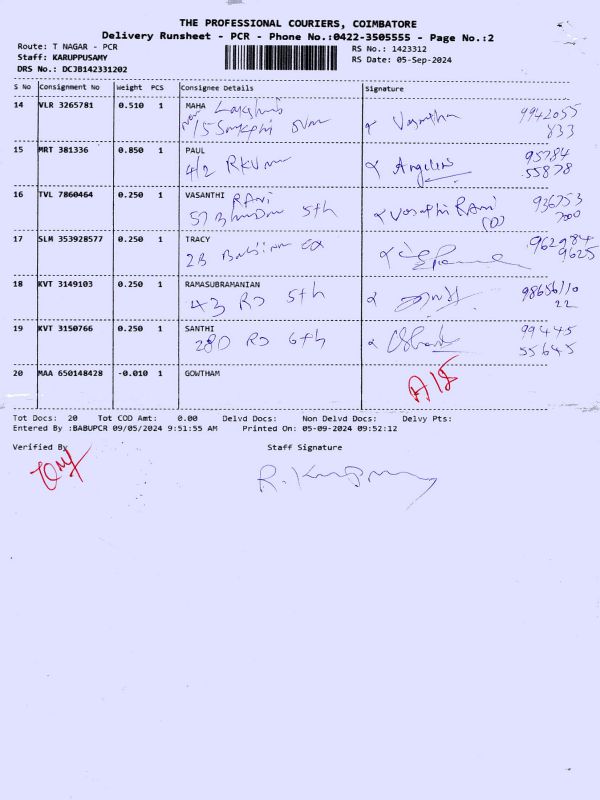 THE PROFESSIONAL COURIERS, COIMBATORE
Delivery Runsheet - PCR - Phone No.:0422-3505555 - Page No.:2
Route: T NAGAR - PCR RS No.: 1423312
Staff: KARUPPUSAMY RS Date: 05-Sep-2024
DRS No.: DCJB142331202
S No Consignment No Weight PCS Consignee Details Signature
14 VLR 3265781 0.510 1 MAHA Lakshmi 9942055
833
15 MRT 381336 0.850 1 PAUL 95784
4/2 RKV Angelin 55878
16 TVL 7860464 0.250 1 VASANTHI RANI 936753
5th Vasathi RANI 7000
17 SLM 353928577 0.250 1 TRACY 962984
2B 9625
18 KVT 3149103 0.250 1 RAMASUBRAMANIAN 98656110
43 RD 5th 22
19 KVT 3150766 0.250 1 SANTHI 99445
280 RD 6th 55645
20 MAA 650148428 -0.010 1 GOWTHAM
Tot Docs: 20 Tot COD Amt: 0.00 Delvd Docs: Non Delvd Docs: Delvy Pts:
Entered By :BABUPCR 09/05/2024 9:51:55 AM Printed On: 05-09-2024 09:52:12
Verified By Staff Signature